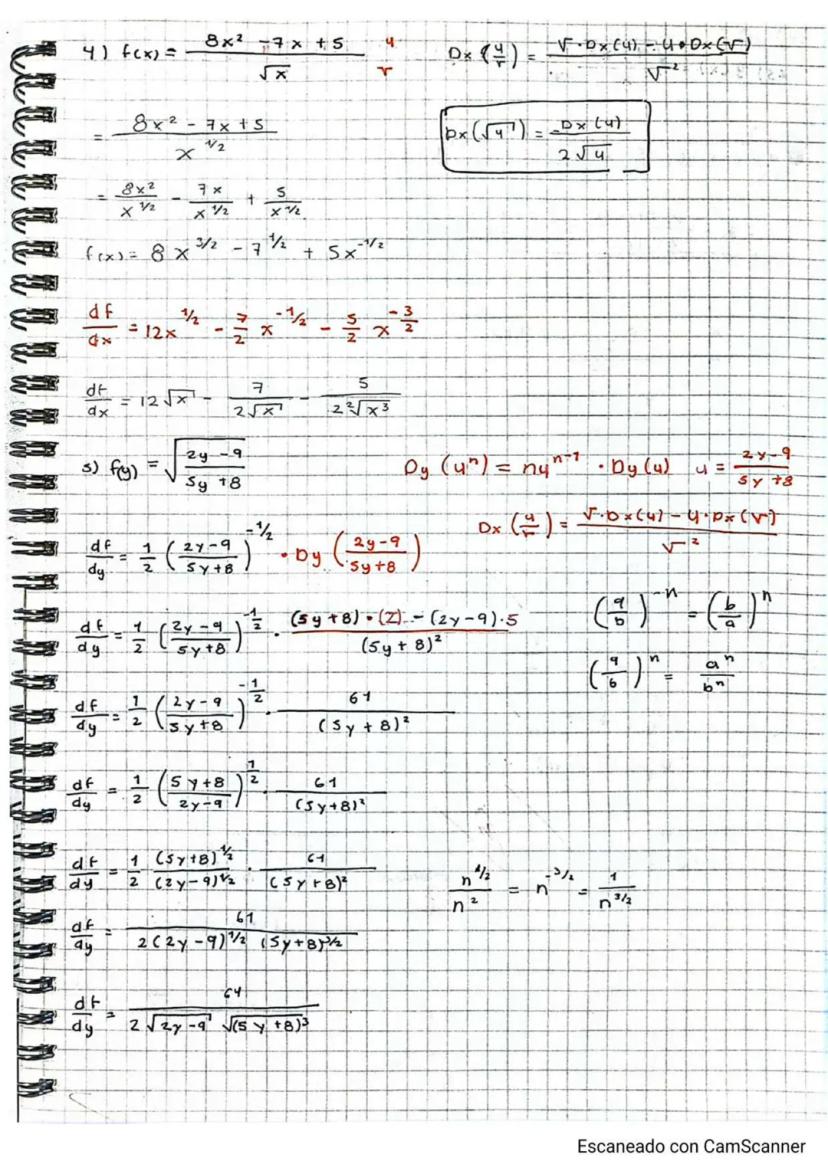 4) f(x) = (8x² - 7x + 5)/√x   u   v   Dx (u/v) = (v·Dx(u) - u·Dx(v))/v²
= (8x² - 7x + 5)/x^(1/2)   Dx(√u) = Dx(u)/(2√u)
= 8x²/x^(1/2) - 7x/x^(1/2) + 5/x^(1/2)
f(x) = 8x^(3/2) - 7^(1/2) + 5x^(-1/2)
df/dx = 12x^(1/2) - 7/2 x^(-1/2) - 5/2 x^(-3/2)
df/dx = 12√x - 7/(2√x) - 5/(2 ²√x³)
5) f(y) = √((2y - 9)/(5y + 8))   Dy (u^n) = nu^(n-1) · Dy(u)   u = (2y-9)/(5y+8)
Dx (u/v) = (v·Dx(u) - u·Dx(v))/v²
df/dy = 1/2 ((2y-9)/(5y+8))^(-1/2) · Dy ((2y-9)/(5y+8))
(a/b)^(-n) = (b/a)^n
df/dy = 1/2 ((2y-9)/(5y+8))^(-1/2) · ((5y+8)·(2) - (2y-9)·5)/(5y+8)²
(a/b)^n = a^n/b^n
df/dy = 1/2 ((2y-9)/(5y+8))^(-1/2) · 61/(5y+8)²
df/dy = 1/2 ((5y+8)/(2y-9))^(1/2) · 61/(5y+8)²
df/dy = 1/2 (5y+8)^(1/2)/(2y-9)^(1/2) · 61/(5y+8)²   n^(1/2)/n² = n^(-3/2) = 1/n^(3/2)
df/dy = 61/(2(2y-9)^(1/2) (5y+8)^(3/2))
df/dy = 61/(2√(2y-9) √(5y+8)³)
Escaneado con CamScanner